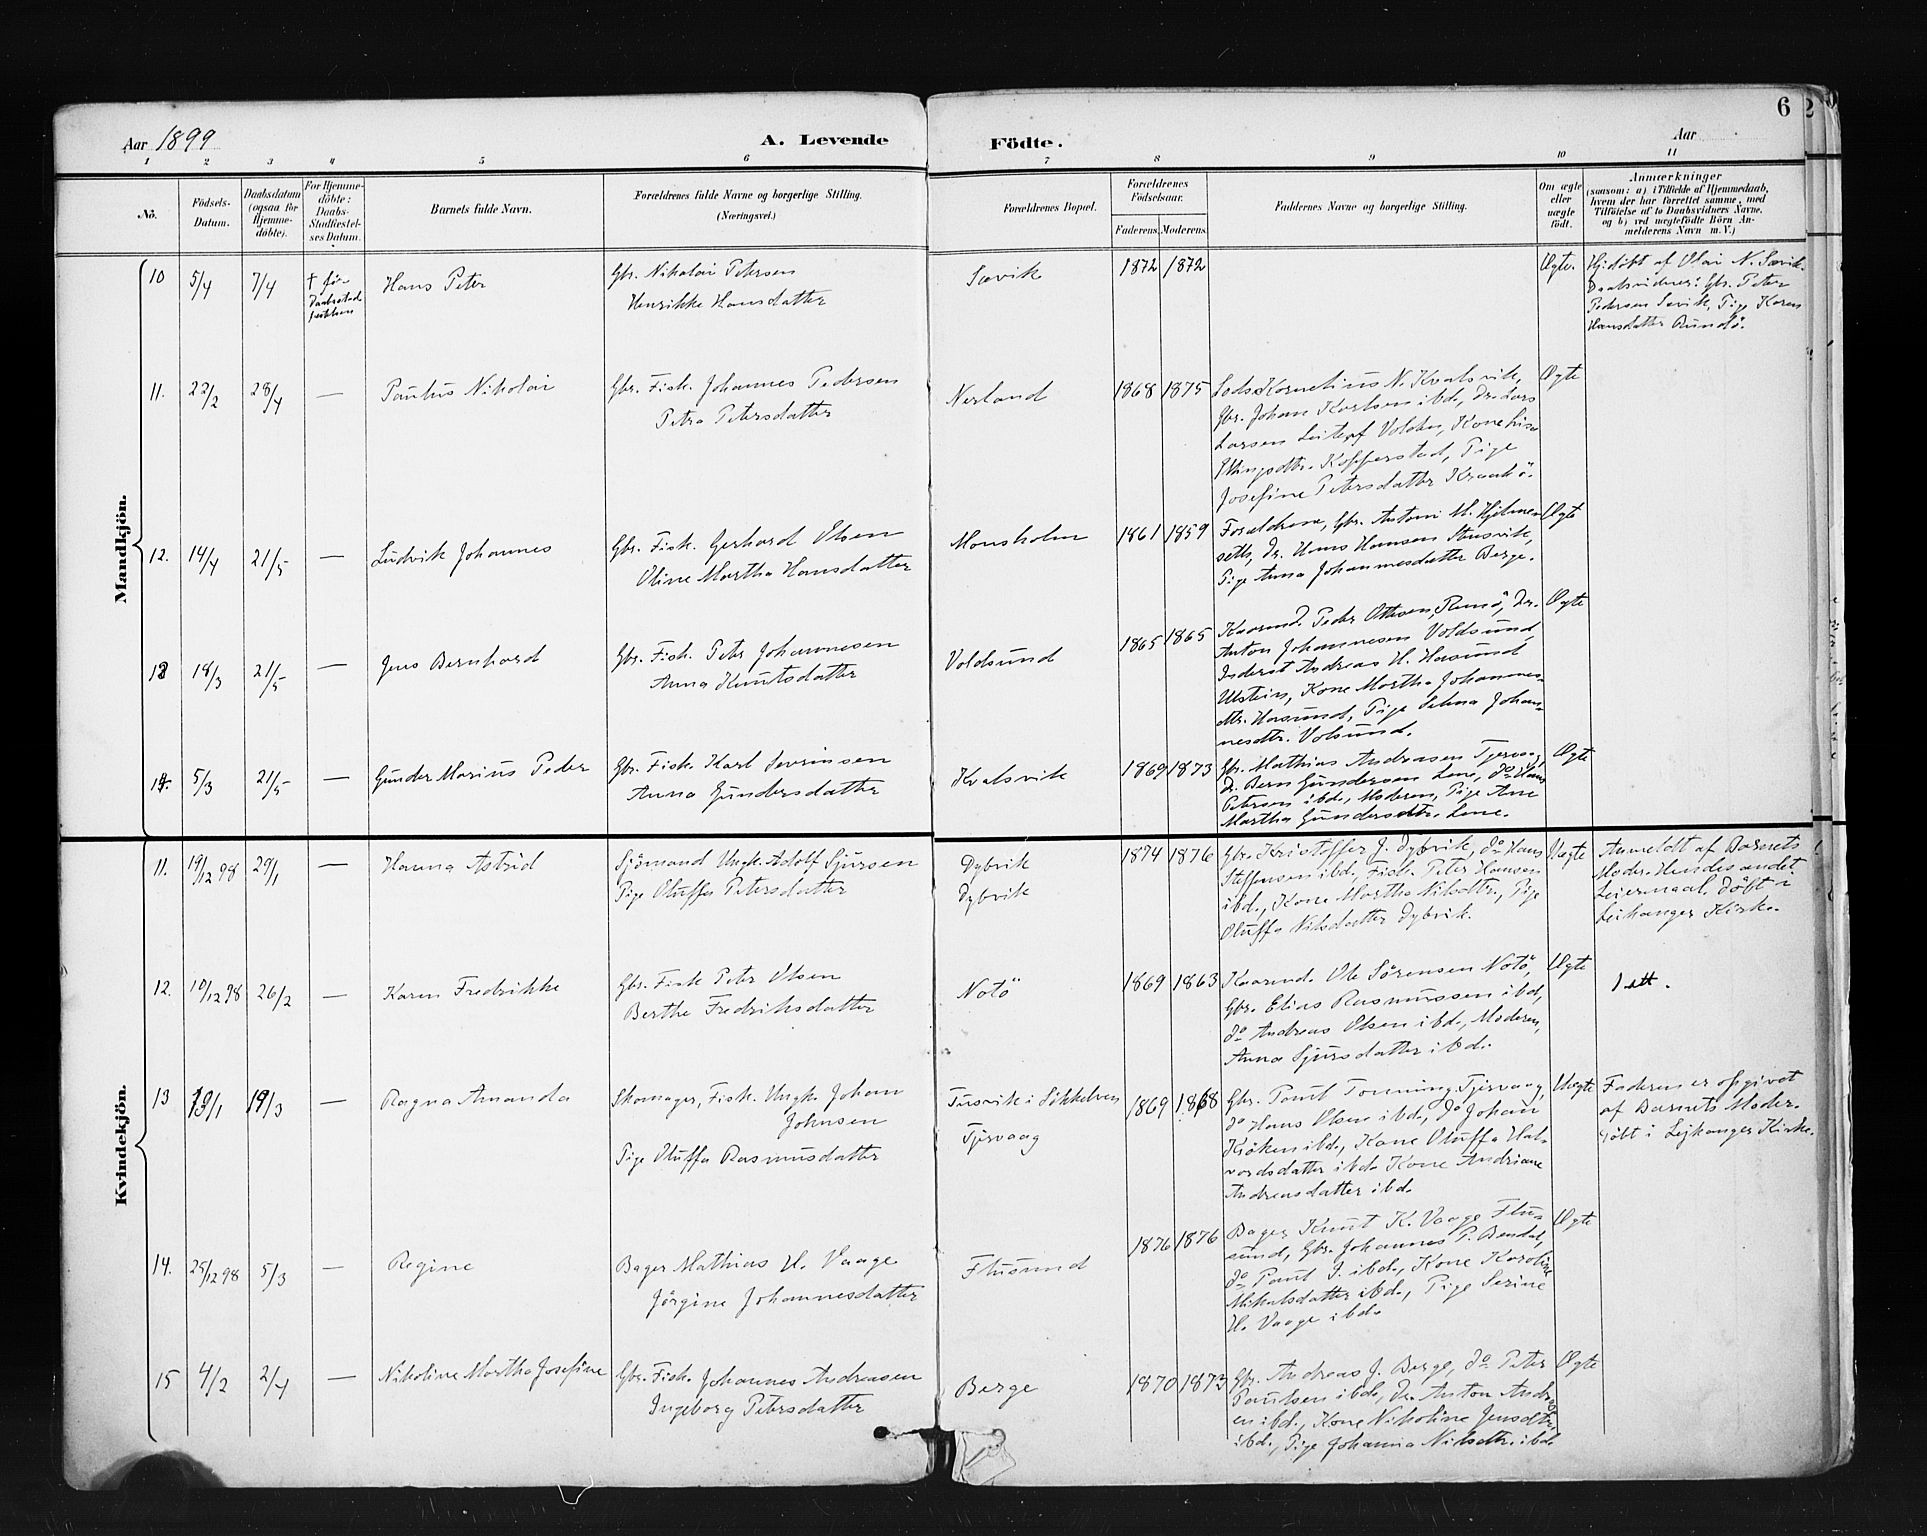 6
Aar 1899
A. Levende Födte.
Aar
1 2 3 4 5 6 7 8 9 10 11
No.
Födsels-
Datum.
Daabsdatum
(ogsaa for
Hjemme-
döbte).
For Hjemme-
döbte:
Daabs-
Stadfæstel-
ses Datum.
Barnets fulde Navn.
Forældrenes fulde Navne og borgerlige Stilling.
(Næringsvei.)
Forældrenes Bopæl.
Forældrenes
Födselsaar.
Faderens. Moderens.
Faddernes Navne og borgerlige Stilling.
Om ægte
eller
uægte
födt.
Anmærkninger
(saasom: a) i Tilfælde af Hjemmedaab,
hvem der har forrettet samme, med
Tilföielse af to Daabsvidners Navne,
og b) ved uægtefödte Börn An-
melderens Navn m. V.)
Mandkjön.
10 5/4 7/4 † før
Daabsstad
Hans Peter
Gbr. Nikolai Petersen
Henrikke Hansdatter
Sævik
1872 1872
Ægte.
Hj.döbt af Olai N. Sævik.
Daabsvidner: Gbr. Peter
Pedersen Sævik, Pige Karen
Hansdatter Rundö.
11. 22/2 28/4 —
Paulus Nikolai
Gbr. Fisk. Johannes Pedersen
Petra Petersdatter
Nerland
1868 1875
Kornelius N. Kvalsvik,
Gbr. Johan Karlsen ibd., Dr. Lars
Larsen Volden, Kone
Kopperstad, Pige
Josefine Petersdatter Kraakö.
Ægte
12. 14/4 21/5 —
Ludvik Johannes
Gbr. Fisk. Gerhard Olsen
Oline Martha Hansdatter
Mønsholm
1861 1859
Forældrene, Gbr. Antoni M. Hjelme-
seth, Dr. Hans Hansen
Pige Anna Johannesdatter Berge.
Ægte
13 18/3 21/5 —
Jens Bernhard
Gbr. Fisk. Peter Johannesen
Anna Knutsdatter
Voldsund
1865 1865
Kaarmd. Peder Ottesen, Remö, Dr.
Anton Johannesen Voldsund
Inderst Andreas H. Hasund
Ulstein, Kone Martha Johannes-
dtr. Hasund, Pige Selma Johan-
nesdtr. Volsund.
Ægte
14. 5/3 21/5 —
Gunder Marius Peder
Gbr. Fisk. Karl Severinsen
Anna Gundersdatter
Kvalsvik
1869 1873
Gbr. Mathias Andreasen Tjervaag,
Dr. Bern Gundersen Lene, do Hans
Petersen ibd., Moderen, Pige Ane
Martha Gundersdtr. Lene.
Ægte
Kvindekjön.
11. 19/12 98 29/1 —
Hanna Astrid
Sjömand Ungk. Adolf Sjursen
Pige Oluffa Petersdatter
Dybvik
Dybvik
1874 1876
Gbr. Kristoffer J. Dybvik, do Hans
Steffensen ibd., Fisk. Peter Hansen
ibd., Kone Martha Nilsdtr., Pige
Oluffa Nilsdatter Dybvik.
Uægte
Anmeldt af Barnets
Moder. Hendes andet
Leiermaal. Döbt i
Leikanger Kirke.
12. 10/12 98 26/2 —
Karen Fredrikke
Gbr. Fisk Peter Olsen
Berthe Fredriksdatter
Notö
1869 1863
Kaarmd. Ole Sörensen Notö,
Gbr. Elias Rasmussen ibd,
do Andreas Olsen ibd., Moderen,
Anna Sjursdatter ibd.
Ægte
1 att.
13 13/1 19/3 —
Ragna Amanda
Skomager, Fisk. Ungk. Johan
Johnsen
Pige Oluffa Rasmusdatter
Tusvik i Søkkelven
Tjervaag
1869 1868
Gbr. Paul Tonning, Tjervaag,
do Hans Olsen ibd., do Johan
Kjöken ibd., Kone Oluffa Hal-
vordsdatter ibd. Kone Andriane
Andreasdatter ibd.
Uægte
Faderen er opgivet
af Barnets Moder.
Döbt i Leikanger Kirke.
14. 25/12 98 5/3 —
Regine
Bager Mathias H. Vaage
Jörgine Johannesdatter
Flusund
1876 1876
Bager Knut K. Vaage Flu-
sund, Gbr. Johannes P. Bendal,
do Paul J. ibd., Kone Karoline
Mikalsdatter ibd., Pige Serine
H. Vaage ibd.
Ægte
15 4/2 2/4 —
Nikoline Martha Josefine
Gbr. Fisk. Johannes Andreasen
Ingeborg Petersdatter
Berge
1870 1873
Gbr. Andreas J. Berge, do Peter
Paulsen ibd, Dr. Anton Andreas-
en ibd., Kone Nikoline Jensdtr.
ibd., Pige Johanna Nilsdtr. ibd.
Ægte